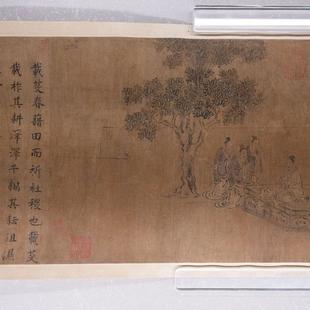 載芟春藉田而祈社稷也載芟
載柞其耕澤澤千耦其耘徂隰